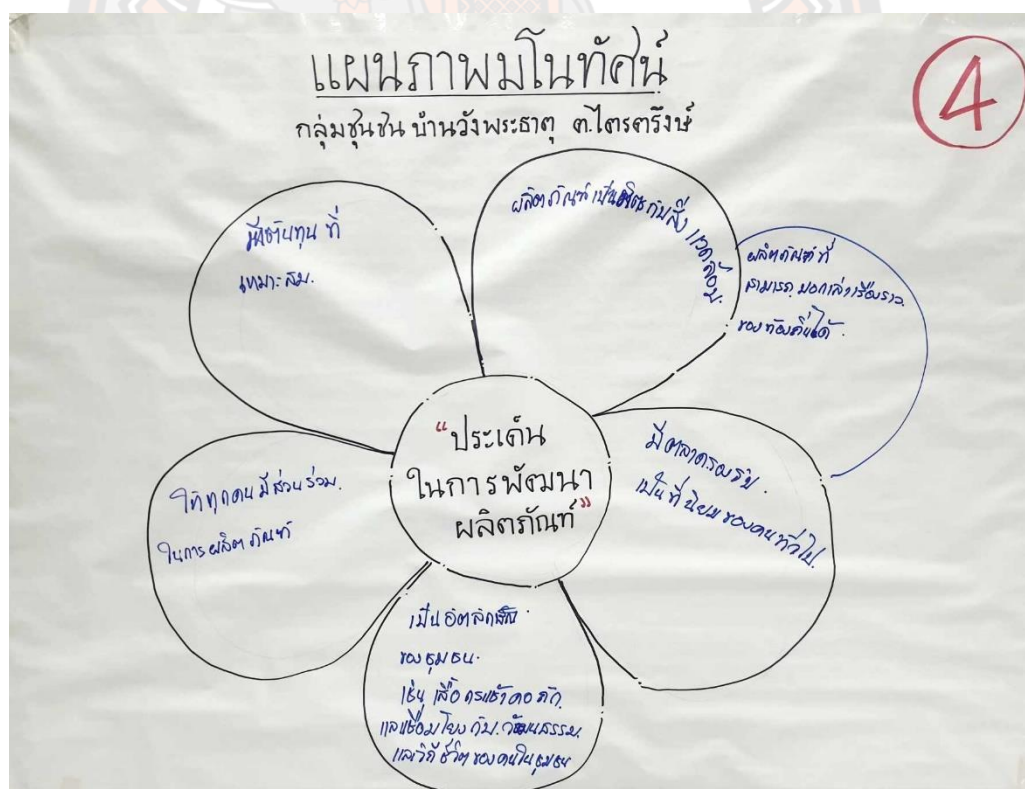 แผนภาพมโนทัศน์
กลุ่มชุมชน บ้านวังพระธาตุ ต.ไตรตรึงษ์
4
มีต้นทุน ที่
เหมาะสม.
ผลิตภัณฑ์ เป็นมิตร กับสิ่งแวดล้อม.
ผลิตภัณฑ์ที่
สามารถ บอกเล่าเรื่องราว.
ของท้องถิ่นได้.
"ประเด็น
ในการพัฒนา
ผลิตภัณฑ์"
มีตลาดรองรับ.
เป็นที่นิยมของคนทั่วไป.
ให้ทุกคนมีส่วนร่วม.
ในการผลิตภัณฑ์
เป็นอัตลักษณ์
ของชุมชน.
เช่น เสื้อ กระเช้า ถัก
และเชื่อมโยงกับ.วัฒนธรรม.
และวิถีชีวิตของคนในชุมชน